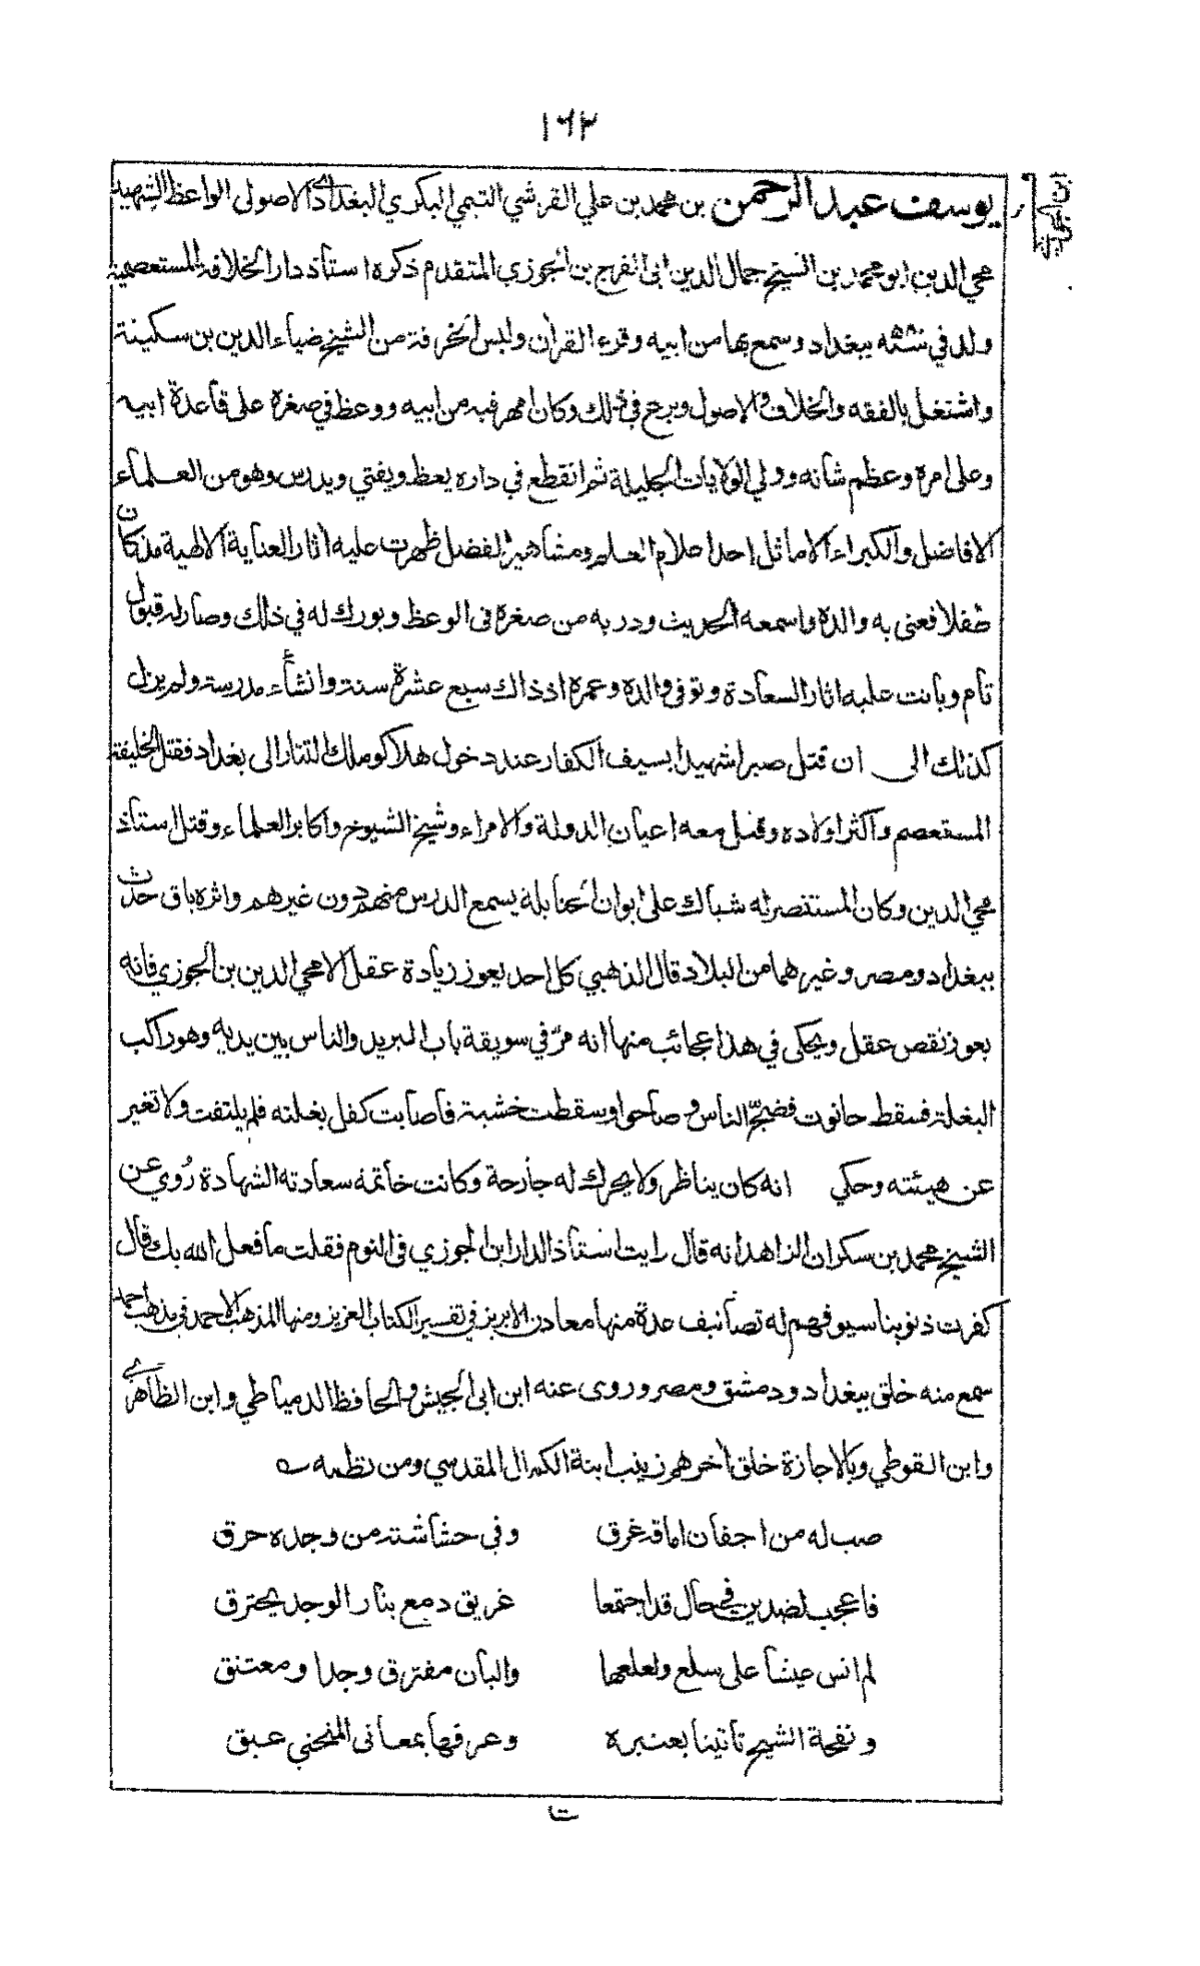 ١٦٢
ابن الجوزي
يوسف عبد الرحمن بن محمد بن علي القرشي التيمي البكري البغدادي الاصولي الواعظ الشهيد
محي الدين ابو محمد بن الشيخ جمال الدين ابى الفرج بن الجوزي المتقدم ذكره استاذ دار الخلافة المستعصمية
ولد في سنة ببغداد وسمع بها من ابيه وقرء القران ولبس الخرقة من الشيخ ضياء الدين بن سكينة
واشتغل بالفقه والخلاف والاصول وبرع في ذلك وكان امهر فيه من ابيه ووعظ في صغره على قاعدة ابيه
وعلى امره وعظم شأنه وولي الولايات الجليلة ثم انقطع في داره يعظ ويفتي ويدرس وهو من العلماء
الافاضل والكبراء الاماثل احد اعلام العلم ومشاهير الفضل ظهرت عليه اثار العناية الالهية مذ كان
طفلا فعنى به والده واسمعه الحديث ودربه من صغره في الوعظ وبورك له في ذلك وصار له قبول
تام وبانت عليه اثار السعادة وتوفى والده وعمره اذ ذاك سبع عشرة سنة وانشأ مدرسة ولم يزل
كذلك الى ان قتل صبرا شهيدا بسيف الكفار عند دخول هلاكو ملك التتار الى بغداد فقتل الخليفة
المستعصم واكثر اولاده وقتل معه اعيان الدولة والامراء وشيخ الشيوخ واكابر العلماء وقتل استاذ
محي الدين وكان المستنصر له شباك على ايوان الحنابلة يسمع الدرس منهم دون غيرهم واثره باق حدث
ببغداد ومصر وغيرهما من البلاد قال الذهبي كل احد يعوز زيادة عقل الا محي الدين بن الجوزي فانه
يعوز نقص عقل ويحكى في هذا عجائب منها انه مرّ في سويقة باب البريد والناس بين يديه وهو راكب
البغلة فسقط حانوت فضجّ الناس وصاحوا وسقطت خشبة فأصابت كفل بغلته فلم يلتفت ولا تغير
عن هيئته وحكي انه كان يناظر ولا يحرك له جارحة وكانت خاتمة سعادته الشهادة رُوي عن
الشيخ محمد بن سكران الزاهد انه قال رايت استاذ الدار ابن الجوزي في النوم فقلت ما فعل الله بك قال
كفرت ذنوبنا سيوفهم له تصانيف عدة منها معادن الابريز في تفسير الكتاب العزيز ومنها المذهب الاحمد في مذهب احمد
سمع منه خلق ببغداد ودمشق ومصر وروى عنه ابن ابى الجيش والحافظ الدمياطي وابن الظاهري
وابن القوطي وبالاجازة خلق اخرهم زينب ابنة الكمال المقدسي ومن نظمه
صب له من اجفان اماقه غرق وفي حشاشته من وجده حرق
فاعجب لضدين في حال قد اجتمعا غريق دمع بنار الوجد يحترق
لم انس عيشا على سلع ولعلعها والبان مفترق وجدا ومعتنق
ونفحة الشيح تأتينا بعنبره وعرفها بمعانى المنحني عبق